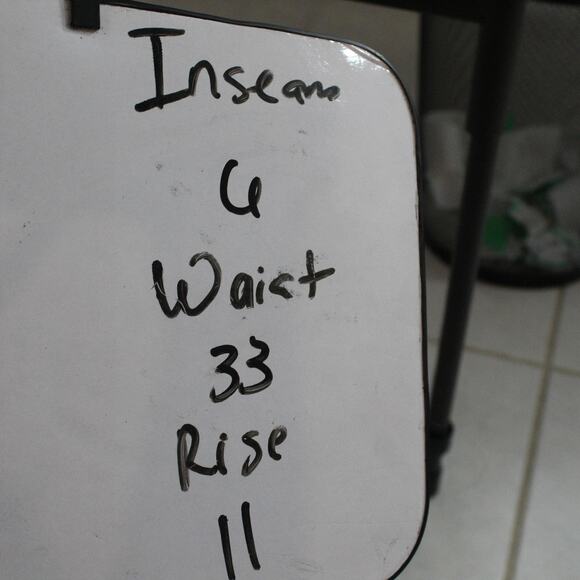 Inseam
6
Waist
33
Rise
11